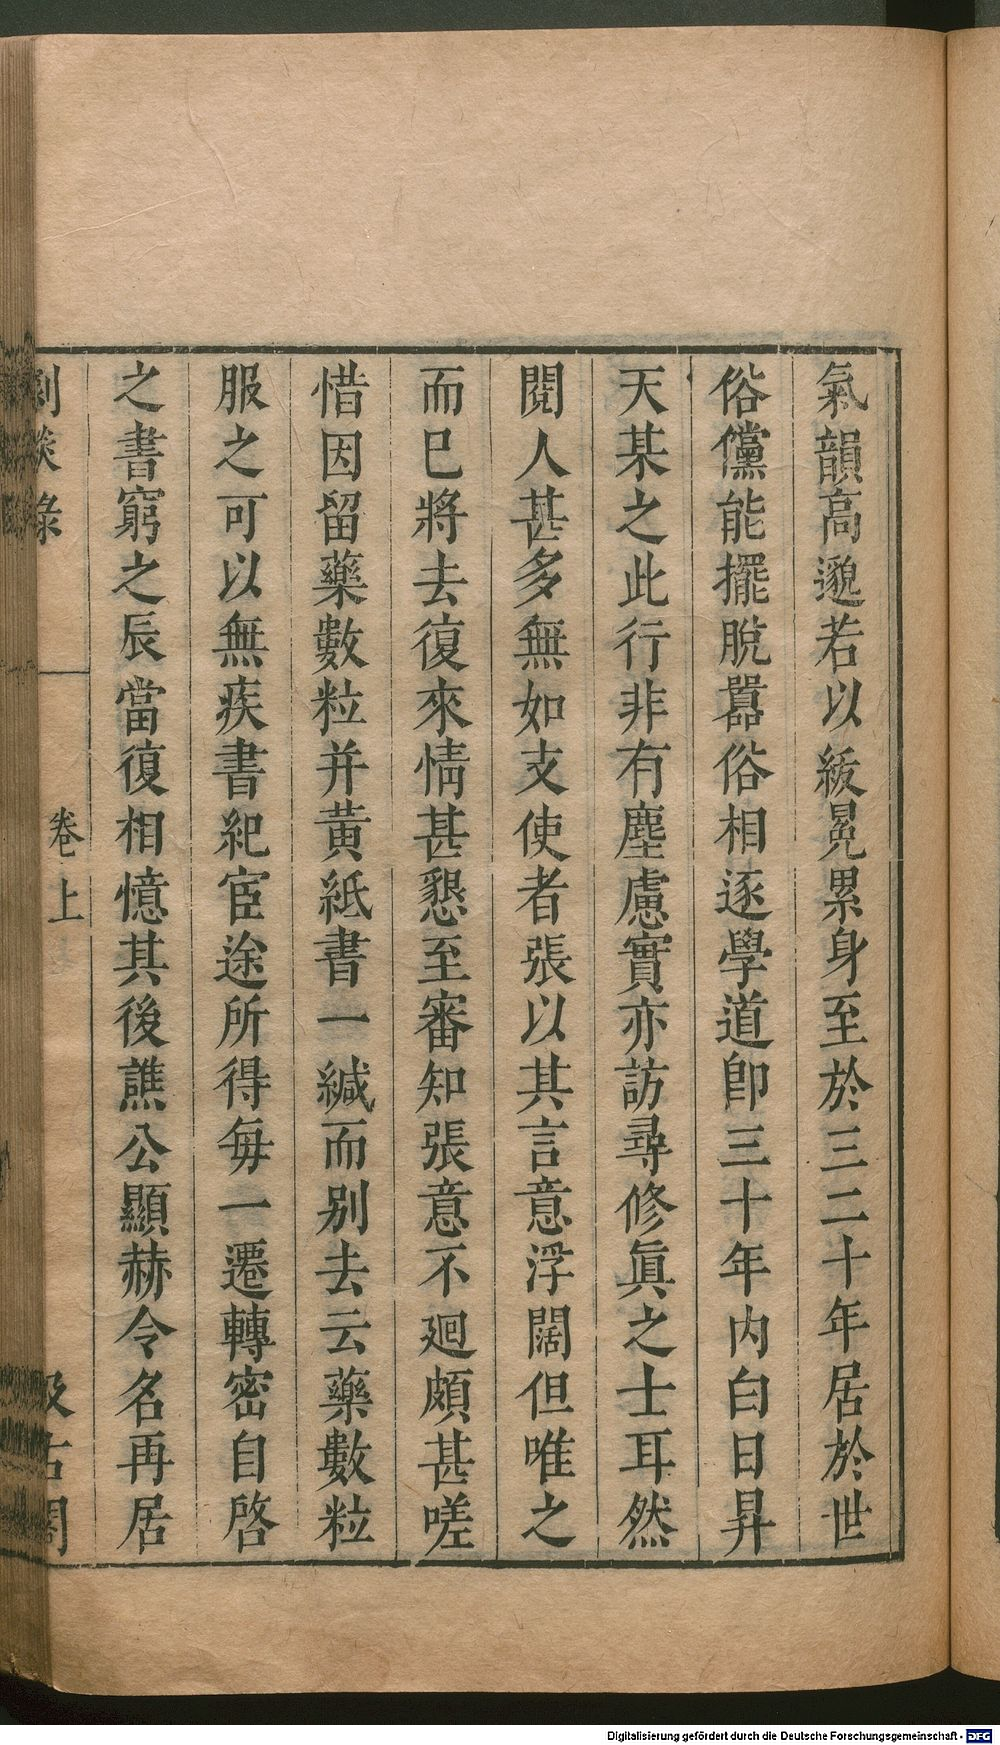 氣韻高邈若以紱冕累身至於三二十年居於世
俗儻能擺脫囂俗相逐學道卽三十年內白日昇
天某之此行非有塵慮實亦訪尋修眞之士耳然
閱人甚多無如支使者張以其言意浮闊但唯之
而巳將去復來情甚懇至審知張意不廻頗甚嗟
惜因留藥數粒并黃紙書一緘而别去云藥數粒
服之可以無疾書紀宦途所得每一遷轉密自啓
之書窮之辰當復相憶其後譙公顯赫令名再居
劇談錄
卷上
汲古閣
Digitalisierung gefördert durch die Deutsche Forschungsgemeinschaft - DFG